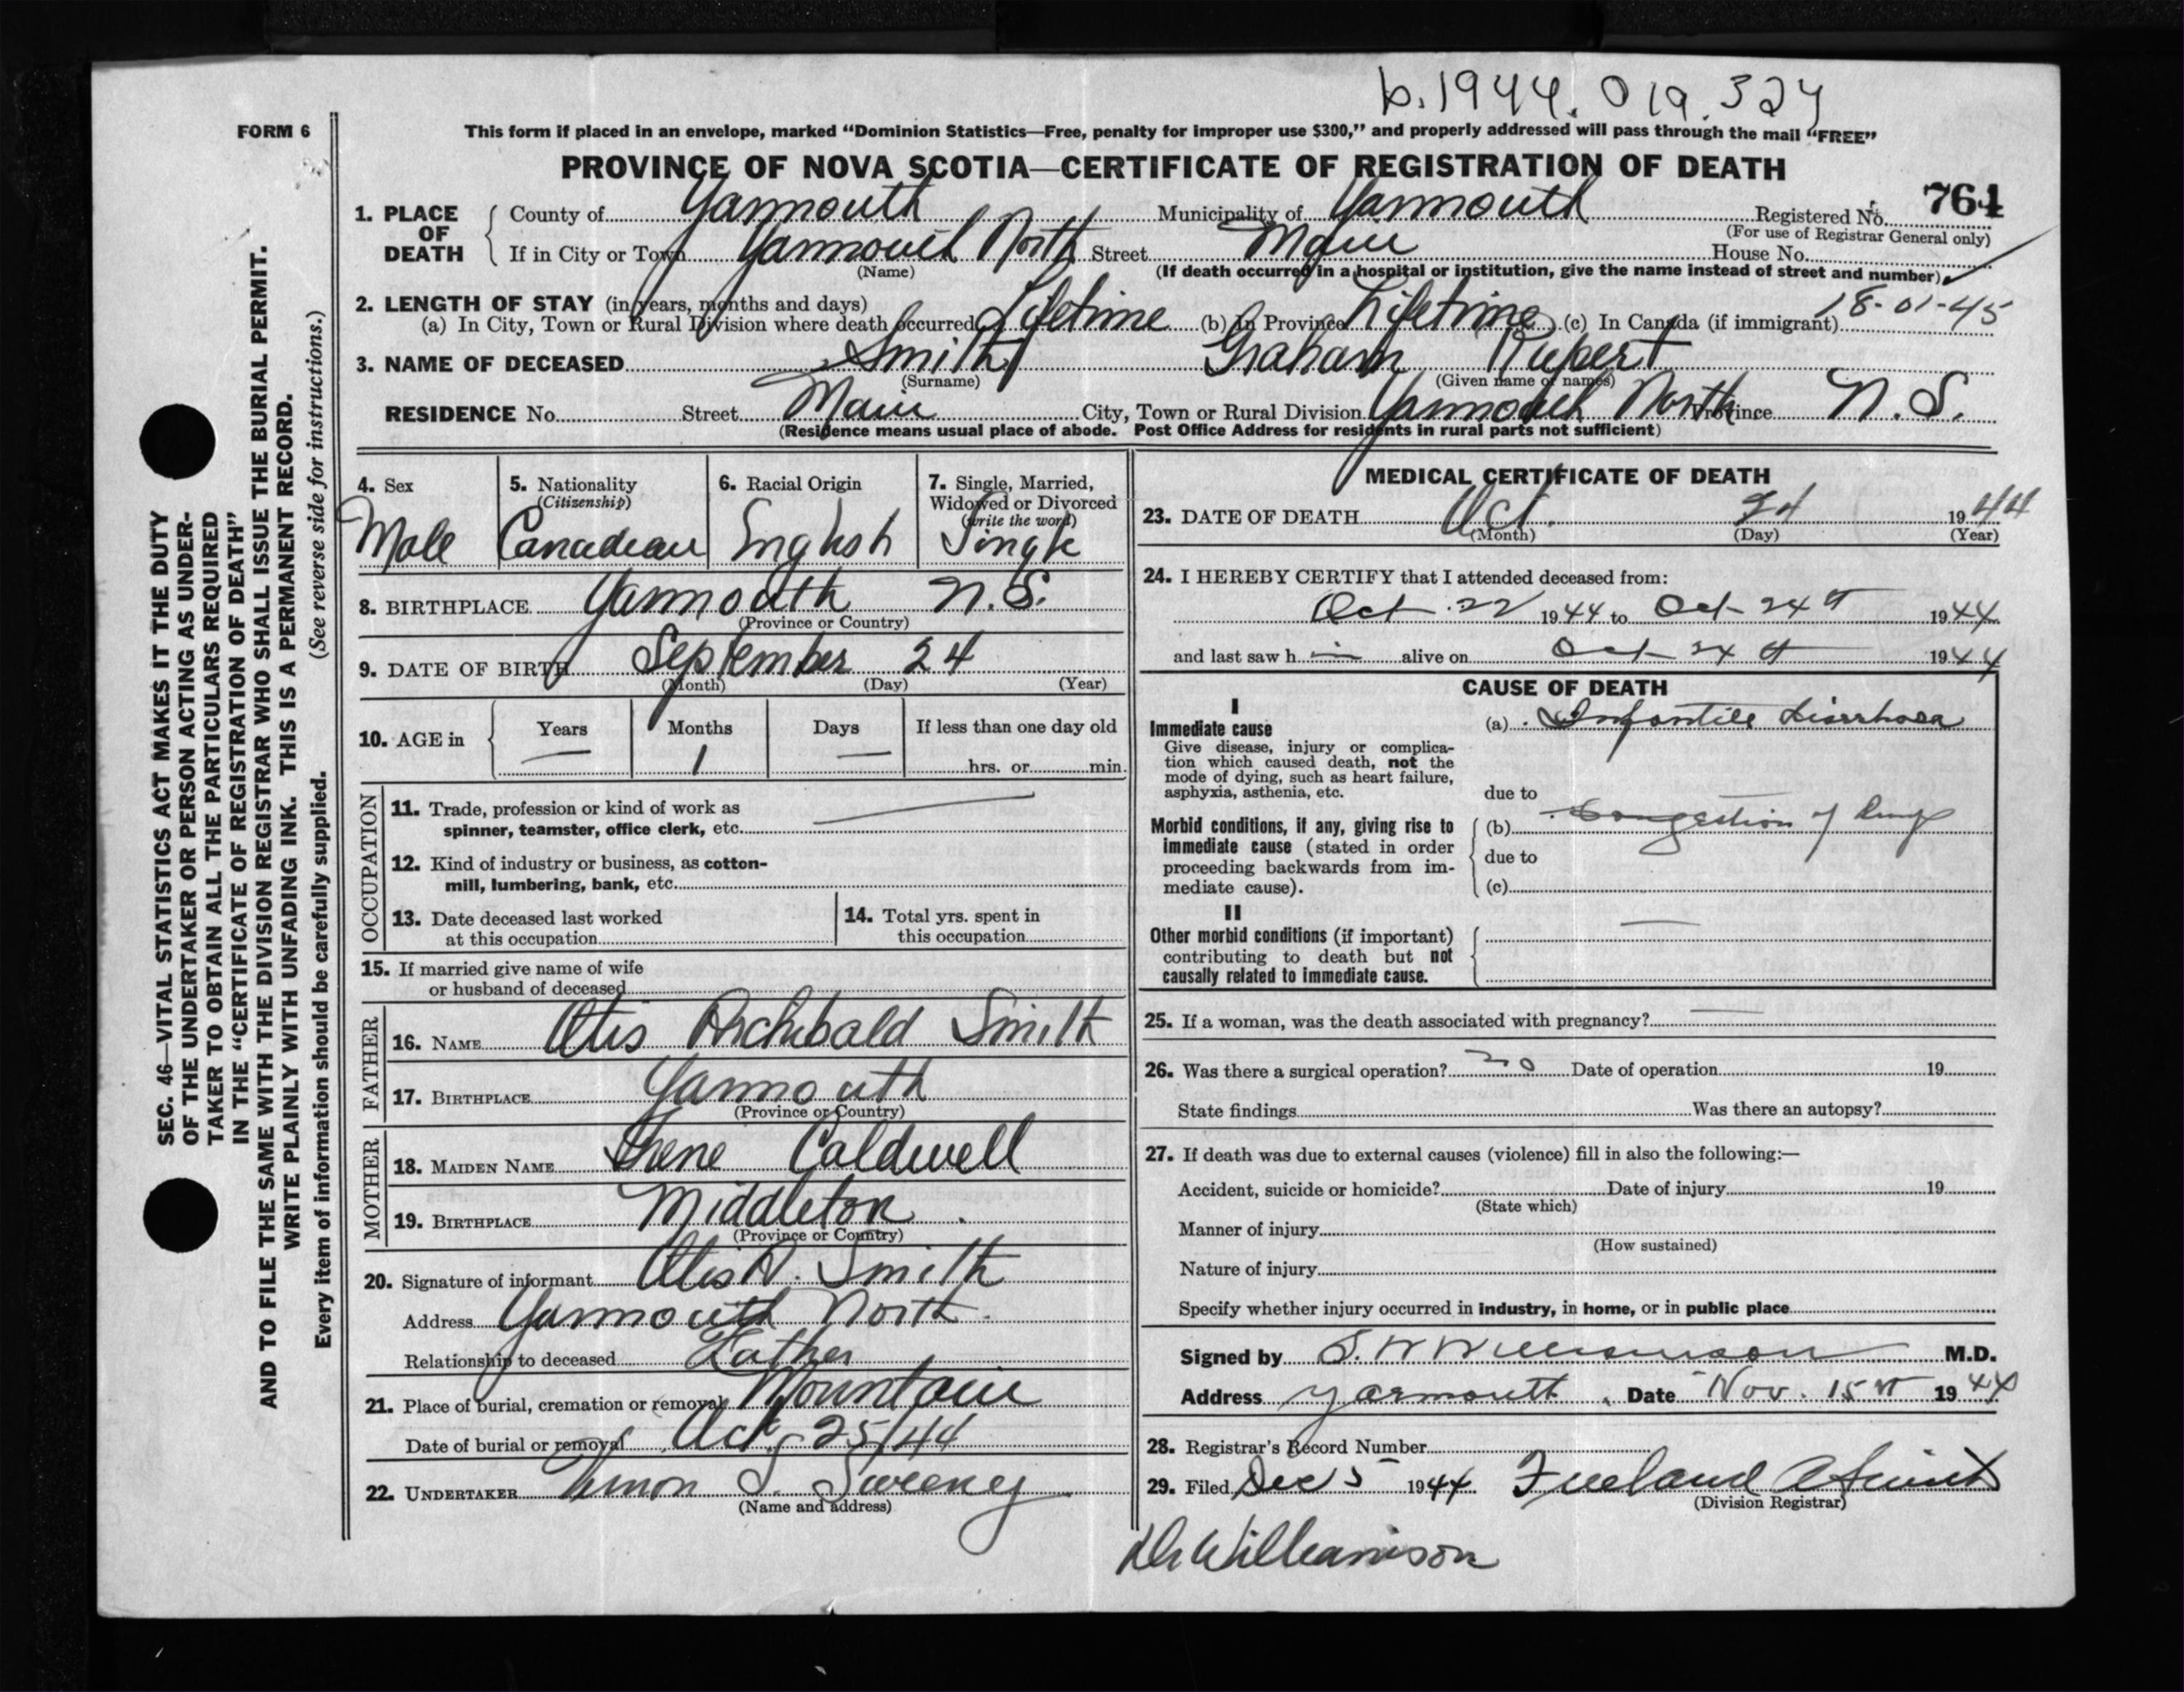 b.1944.019.324
FORM 6
This form if placed in an envelope, marked “Dominion Statistics—Free, penalty for improper use $300,” and properly addressed will pass through the mail “FREE”
PROVINCE OF NOVA SCOTIA—CERTIFICATE OF REGISTRATION OF DEATH
764
1. PLACE OF DEATH County of Yarmouth Municipality of Yarmouth Registered No.
(For use of Registrar General only)
If in City or Town Yarmouth North Street Main House No.
(Name) (If death occurred in a hospital or institution, give the name instead of street and number)
2. LENGTH OF STAY (in years, months and days) 18-01-45
(a) In City, Town or Rural Division where death occurred Lifetime (b) In Province Lifetime (c) In Canada (if immigrant)
3. NAME OF DECEASED Smith Graham Rupert
(Surname) (Given name or names)
RESIDENCE No. Street Main City, Town or Rural Division Yarmouth North Province N.S.
(Residence means usual place of abode. Post Office Address for residents in rural parts not sufficient)
4. Sex 5. Nationality 6. Racial Origin 7. Single, Married,
(Citizenship) Widowed or Divorced
(write the word)
Male Canadian English Single
8. BIRTHPLACE Yarmouth N.S.
(Province or Country)
9. DATE OF BIRTH September 24
(Month) (Day) (Year)
10. AGE in Years Months Days If less than one day old
— 1 — hrs. or min.
OCCUPATION
11. Trade, profession or kind of work as
spinner, teamster, office clerk, etc. —
12. Kind of industry or business, as cotton-
mill, lumbering, bank, etc.
13. Date deceased last worked 14. Total yrs. spent in
at this occupation this occupation
15. If married give name of wife
or husband of deceased
FATHER
16. NAME Otis Archibald Smith
17. BIRTHPLACE Yarmouth
(Province or Country)
MOTHER
18. MAIDEN NAME Irene Caldwell
19. BIRTHPLACE Middleton
(Province or Country)
20. Signature of informant Otis A. Smith
Address Yarmouth North
Relationship to deceased Father
21. Place of burial, cremation or removal Mountain
Date of burial or removal Oct. 25/44
22. UNDERTAKER Vernon S. Sweeney
(Name and address)
MEDICAL CERTIFICATE OF DEATH
23. DATE OF DEATH Oct. 24 1944
(Month) (Day) (Year)
24. I HEREBY CERTIFY that I attended deceased from:
Oct. 22 1944 to Oct 24th 1944
and last saw h im alive on Oct 24th 1944
CAUSE OF DEATH
I
Immediate cause (a) Infantile diarrhoea
Give disease, injury or complica-
tion which caused death, not the
mode of dying, such as heart failure,
asphyxia, asthenia, etc. due to
Morbid conditions, if any, giving rise to (b) Congestion of lungs
immediate cause (stated in order due to
proceeding backwards from im-
mediate cause). (c)
II
Other morbid conditions (if important) —
contributing to death but not
causally related to immediate cause.
25. If a woman, was the death associated with pregnancy? —
26. Was there a surgical operation? no Date of operation 19
State findings Was there an autopsy?
27. If death was due to external causes (violence) fill in also the following:—
Accident, suicide or homicide? Date of injury 19
(State which)
Manner of injury
(How sustained)
Nature of injury
Specify whether injury occurred in industry, in home, or in public place
Signed by S. W Williamson M.D.
Address Yarmouth Date Nov. 15th 1944
28. Registrar's Record Number
29. Filed Dec 5 1944 Freeland A
(Division Registrar)
Dr Williamson
SEC. 46—VITAL STATISTICS ACT MAKES IT THE DUTY
OF THE UNDERTAKER OR PERSON ACTING AS UNDER-
TAKER TO OBTAIN ALL THE PARTICULARS REQUIRED
IN THE “CERTIFICATE OF REGISTRATION OF DEATH”
AND TO FILE THE SAME WITH THE DIVISION REGISTRAR WHO SHALL ISSUE THE BURIAL PERMIT.
WRITE PLAINLY WITH UNFADING INK. THIS IS A PERMANENT RECORD.
Every item of information should be carefully supplied. (See reverse side for instructions.)